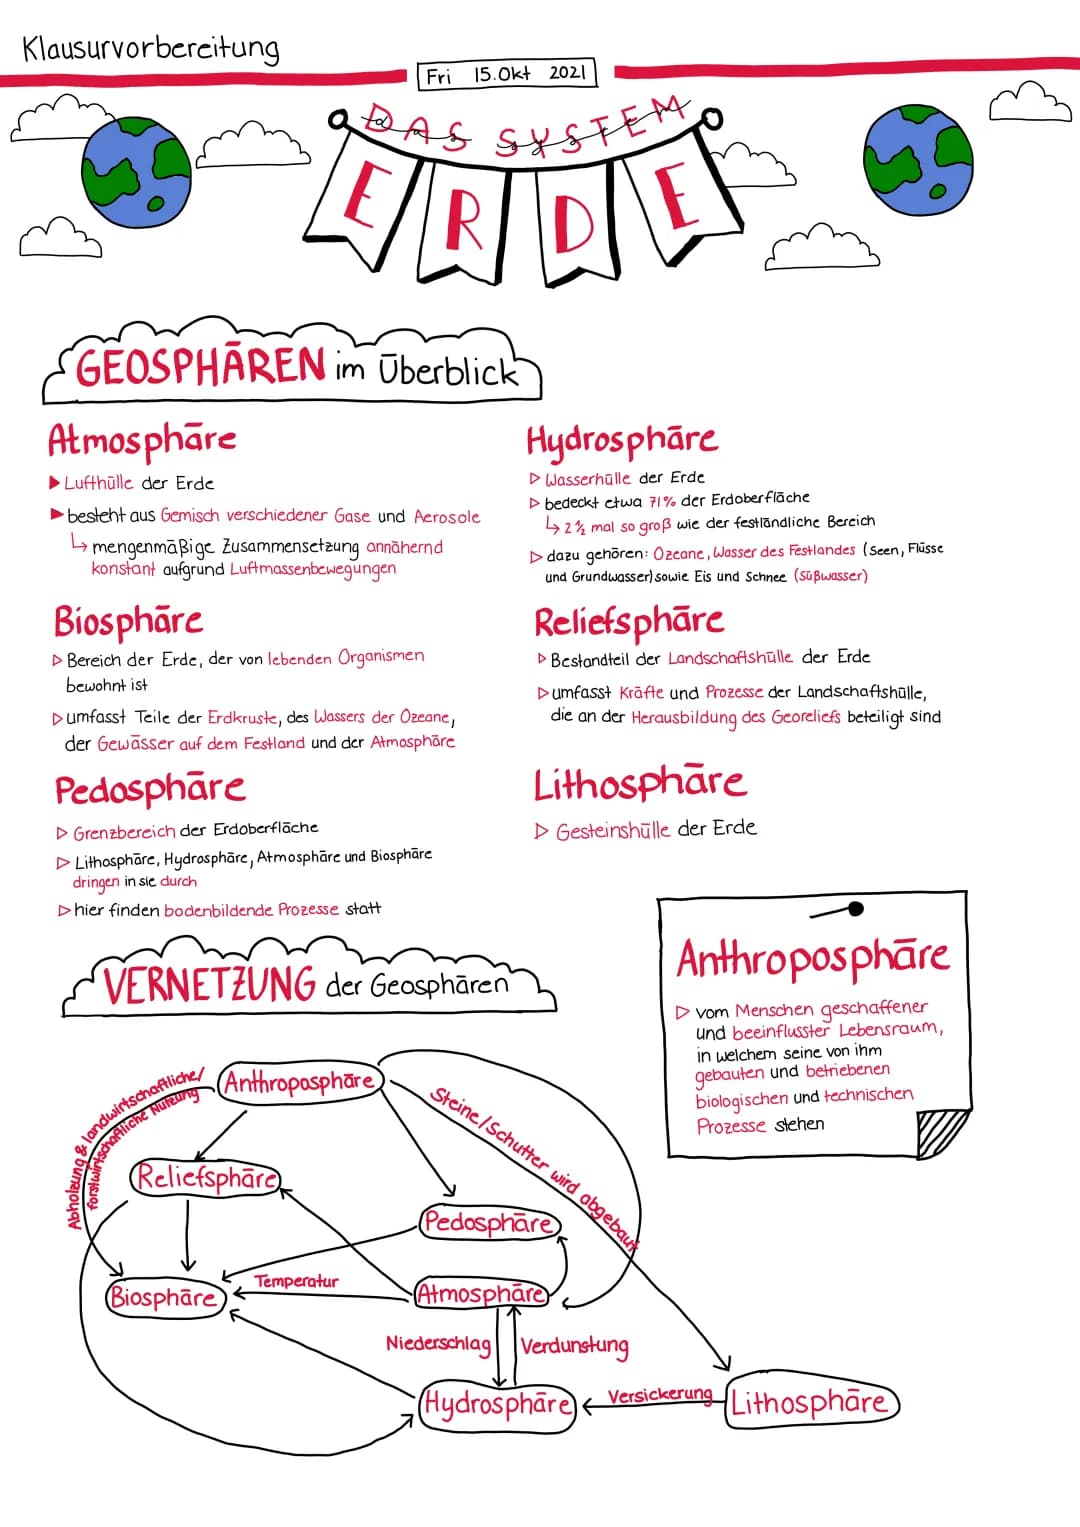 Klausurvorbereitung
Fri 15.Okt 2021
DAS SYSTEM
ERDE
GEOSPHÄREN im Überblick
Atmosphäre
▶ Lufthülle der Erde
▶ besteht aus Gemisch verschiedener Gase und Aerosole
↳ mengenmäßige Zusammensetzung annähernd
konstant aufgrund Luftmassenbewegungen
Hydrosphäre
▷ Wasserhülle der Erde
▷ bedeckt etwa 71% der Erdoberfläche
↳ 2½ mal so groß wie der festländliche Bereich
▷ dazu gehören: Ozeane, Wasser des Festlandes (Seen, Flüsse
und Grundwasser) sowie Eis und Schnee (Süßwasser)
Biosphäre
▷ Bereich der Erde, der von lebenden Organismen
bewohnt ist
▷ umfasst Teile der Erdkruste, des Wassers der Ozeane,
der Gewässer auf dem Festland und der Atmosphäre
Reliefsphäre
▷ Bestandteil der Landschaftshülle der Erde
▷ umfasst Kräfte und Prozesse der Landschaftshülle,
die an der Herausbildung des Georeliefs beteiligt sind
Pedosphäre
▷ Grenzbereich der Erdoberfläche
▷ Lithosphäre, Hydrosphäre, Atmosphäre und Biosphäre
dringen in sie durch
▷ hier finden bodenbildende Prozesse statt
Lithosphäre
▷ Gesteinshülle der Erde
Anthroposphäre
▷ vom Menschen geschaffener
und beeinflusster Lebensraum,
in welchem seine von ihm
gebauten und betriebenen
biologischen und technischen
Prozesse stehen
VERNETZUNG der Geosphären
Abholzung & landwirtschaftliche/
forstwirtschaftliche Nutzung
Anthroposphäre
Steine/Schutter wird abgebaut
Reliefsphäre
Pedosphäre
Biosphäre
Temperatur
Atmosphäre
Niederschlag
Verdunstung
Hydrosphäre
Versickerung
Lithosphäre